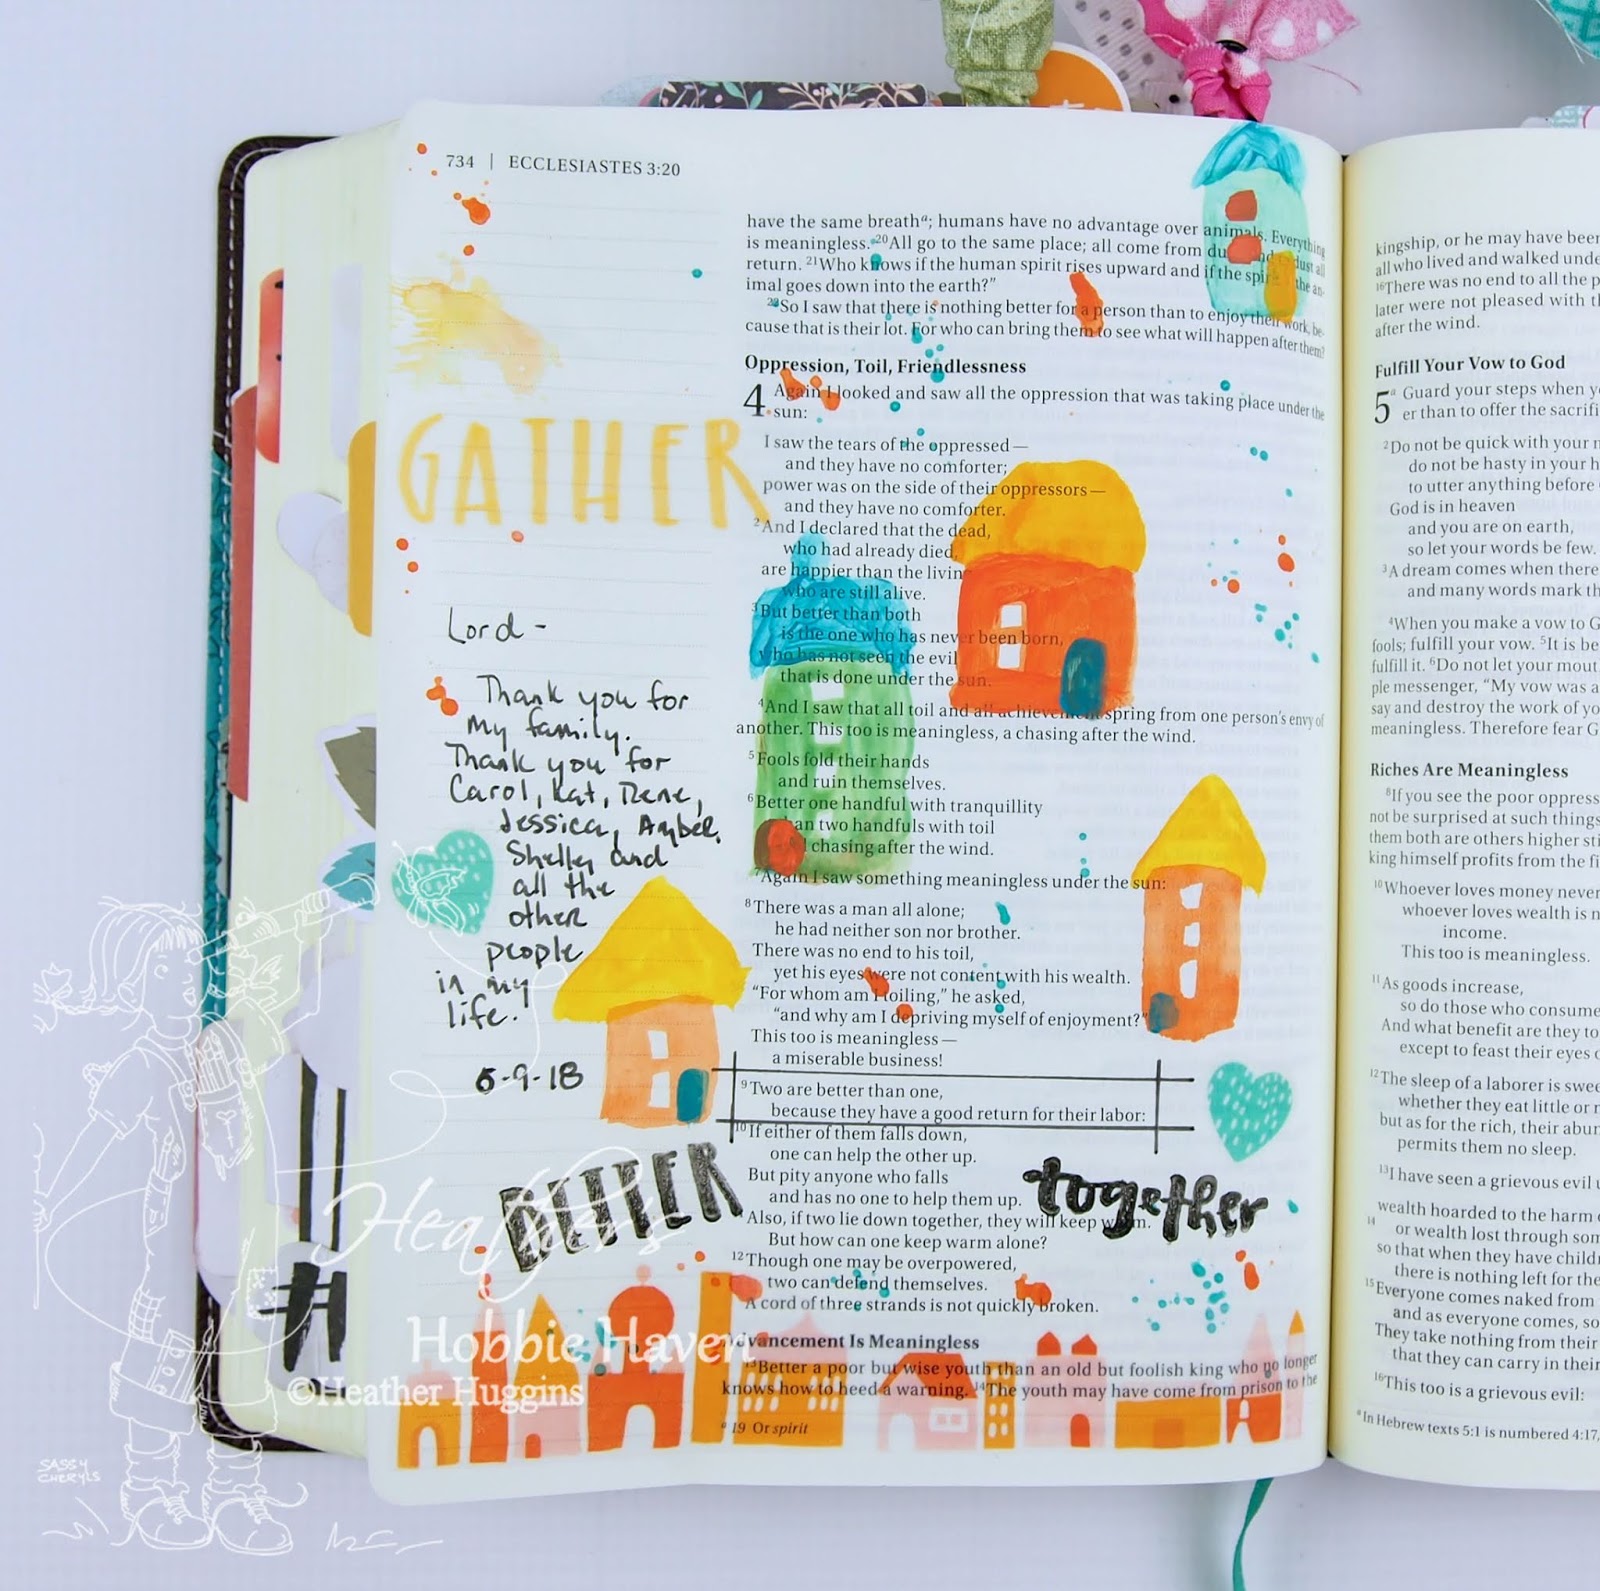 734 | ECCLESIASTES 3:20
have the same breathᵃ; humans have no advantage over animals. Everything
is meaningless. ²⁰All go to the same place; all come from dust, and to dust all
return. ²¹Who knows if the human spirit rises upward and if the spirit of the an-
imal goes down into the earth?”
²²So I saw that there is nothing better for a person than to enjoy their work, be-
cause that is their lot. For who can bring them to see what will happen after them?
Oppression, Toil, Friendlessness
4 Again I looked and saw all the oppression that was taking place under the
sun:
I saw the tears of the oppressed—
and they have no comforter;
power was on the side of their oppressors—
and they have no comforter.
²And I declared that the dead,
who had already died,
are happier than the living,
who are still alive.
³But better than both
is the one who has never been born,
who has not seen the evil
that is done under the sun.
⁴And I saw that all toil and all achievement spring from one person’s envy of
another. This too is meaningless, a chasing after the wind.
⁵Fools fold their hands
and ruin themselves.
⁶Better one handful with tranquillity
than two handfuls with toil
chasing after the wind.
⁷Again I saw something meaningless under the sun:
⁸There was a man all alone;
he had neither son nor brother.
There was no end to his toil,
yet his eyes were not content with his wealth.
“For whom am I toiling,” he asked,
“and why am I depriving myself of enjoyment?”
This too is meaningless—
a miserable business!
⁹Two are better than one,
because they have a good return for their labor:
¹⁰If either of them falls down,
one can help the other up.
But pity anyone who falls
and has no one to help them up.
Also, if two lie down together, they will keep warm.
But how can one keep warm alone?
¹²Though one may be overpowered,
two can defend themselves.
A cord of three strands is not quickly broken.
Advancement Is Meaningless
¹³Better a poor but wise youth than an old but foolish king who no longer
knows how to heed a warning. ¹⁴The youth may have come from prison to the
ᵃ 19 Or spirit
GATHER
Lord -
Thank you for
my family.
Thank you for
Carol, Kat, Irene,
Jessica, Amber,
Shelly and
all the
other
people
in my
life.
5-9-18
BETTER
together
kingship, or he may have been
all who lived and walked under
¹⁶There was no end to all the p
later were not pleased with th
after the wind.
Fulfill Your Vow to God
5ᵃ Guard your steps when y
er than to offer the sacrifi
²Do not be quick with your m
do not be hasty in your h
to utter anything before
God is in heaven
and you are on earth,
so let your words be few.
³A dream comes when there
and many words mark th
⁴When you make a vow to G
fools; fulfill your vow. ⁵It is be
fulfill it. ⁶Do not let your mout
ple messenger, “My vow was a
say and destroy the work of yo
meaningless. Therefore fear G
Riches Are Meaningless
⁸If you see the poor oppress
not be surprised at such things
them both are others higher sti
king himself profits from the fi
¹⁰Whoever loves money never
whoever loves wealth is n
income.
This too is meaningless.
¹¹As goods increase,
so do those who consume
And what benefit are they to
except to feast their eyes o
¹²The sleep of a laborer is swee
whether they eat little or m
but as for the rich, their abun
permits them no sleep.
¹³I have seen a grievous evil u
wealth hoarded to the harm o
¹⁴ or wealth lost through som
so that when they have childr
there is nothing left for the
¹⁵Everyone comes naked from
and as everyone comes, so
They take nothing from their
that they can carry in their
¹⁶This too is a grievous evil:
ᵃIn Hebrew texts 5:1 is numbered 4:17,
Heather's
Hobbie Haven
©Heather Huggins
SASSY
CHERYLS